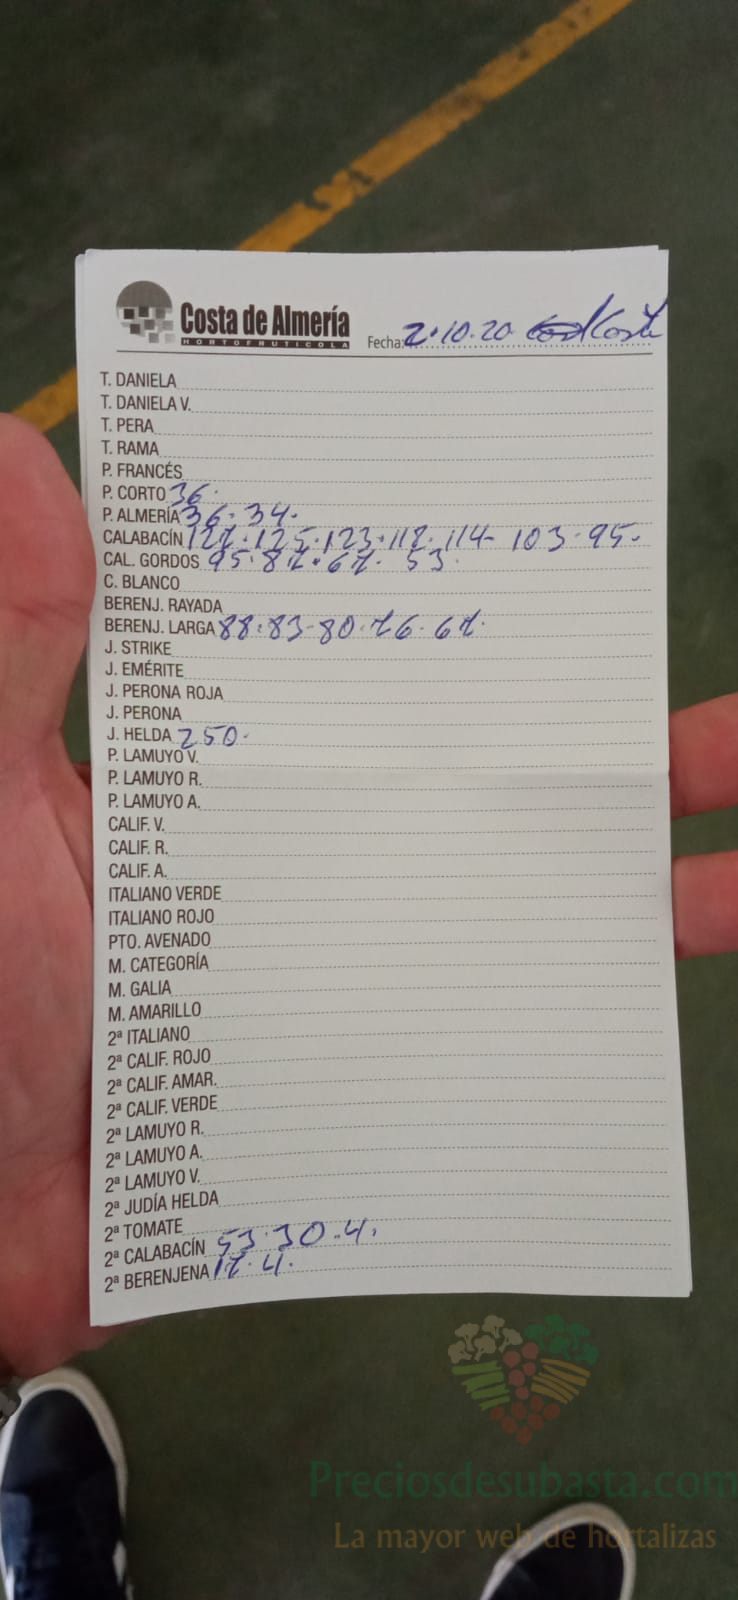 Costa de Almería
HORTOFRUTICOLA
Fecha: 2.10.20
T. DANIELA
T. DANIELA V.
T. PERA
T. RAMA
P. FRANCÉS
P. CORTO 36.
P. ALMERÍA 36. 34.
CALABACÍN 127. 125. 123. 118. 114- 103. 95.
CAL. GORDOS 95. 87. 67. 53.
C. BLANCO
BERENJ. RAYADA
BERENJ. LARGA 88. 83- 80. 76. 67.
J. STRIKE
J. EMÉRITE
J. PERONA ROJA
J. PERONA
J. HELDA 250.
P. LAMUYO V.
P. LAMUYO R.
P. LAMUYO A.
CALIF. V.
CALIF. R.
CALIF. A.
ITALIANO VERDE
ITALIANO ROJO
PTO. AVENADO
M. CATEGORÍA
M. GALIA
M. AMARILLO
2ª ITALIANO
2ª CALIF. ROJO
2ª CALIF. AMAR.
2ª CALIF. VERDE
2ª LAMUYO R.
2ª LAMUYO A.
2ª LAMUYO V.
2ª JUDÍA HELDA
2ª TOMATE
2ª CALABACÍN 53. 30. 4.
2ª BERENJENA 17. 4.
Preciosdesubasta.com
La mayor web de hortalizas